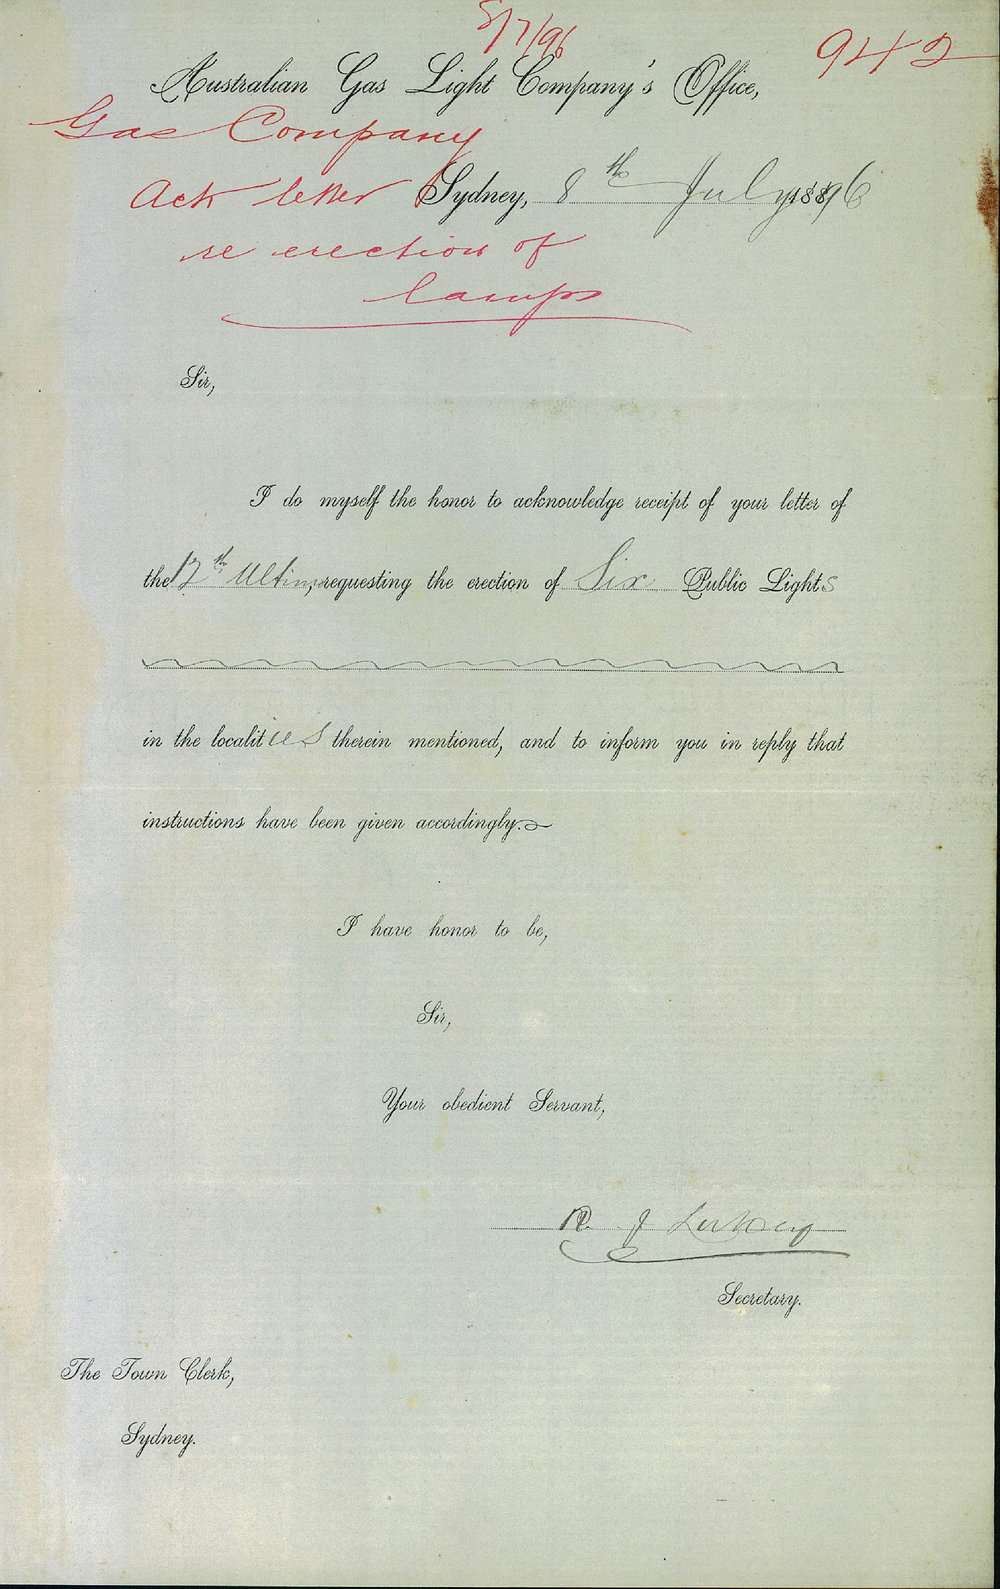 8/7/96
942
Australian Gas Light Company's Office,
Gas Company
Sydney, 8th July 1896
Ack letter
re erection of
lamps
Sir,
I do myself the honor to acknowledge receipt of your letter of
the 12th Ultimo, requesting the erection of Six Public Lights
in the localities therein mentioned, and to inform you in reply that
instructions have been given accordingly.
I have honor to be,
Sir,
Your obedient Servant,
R. J
Secretary.
The Town Clerk,
Sydney.